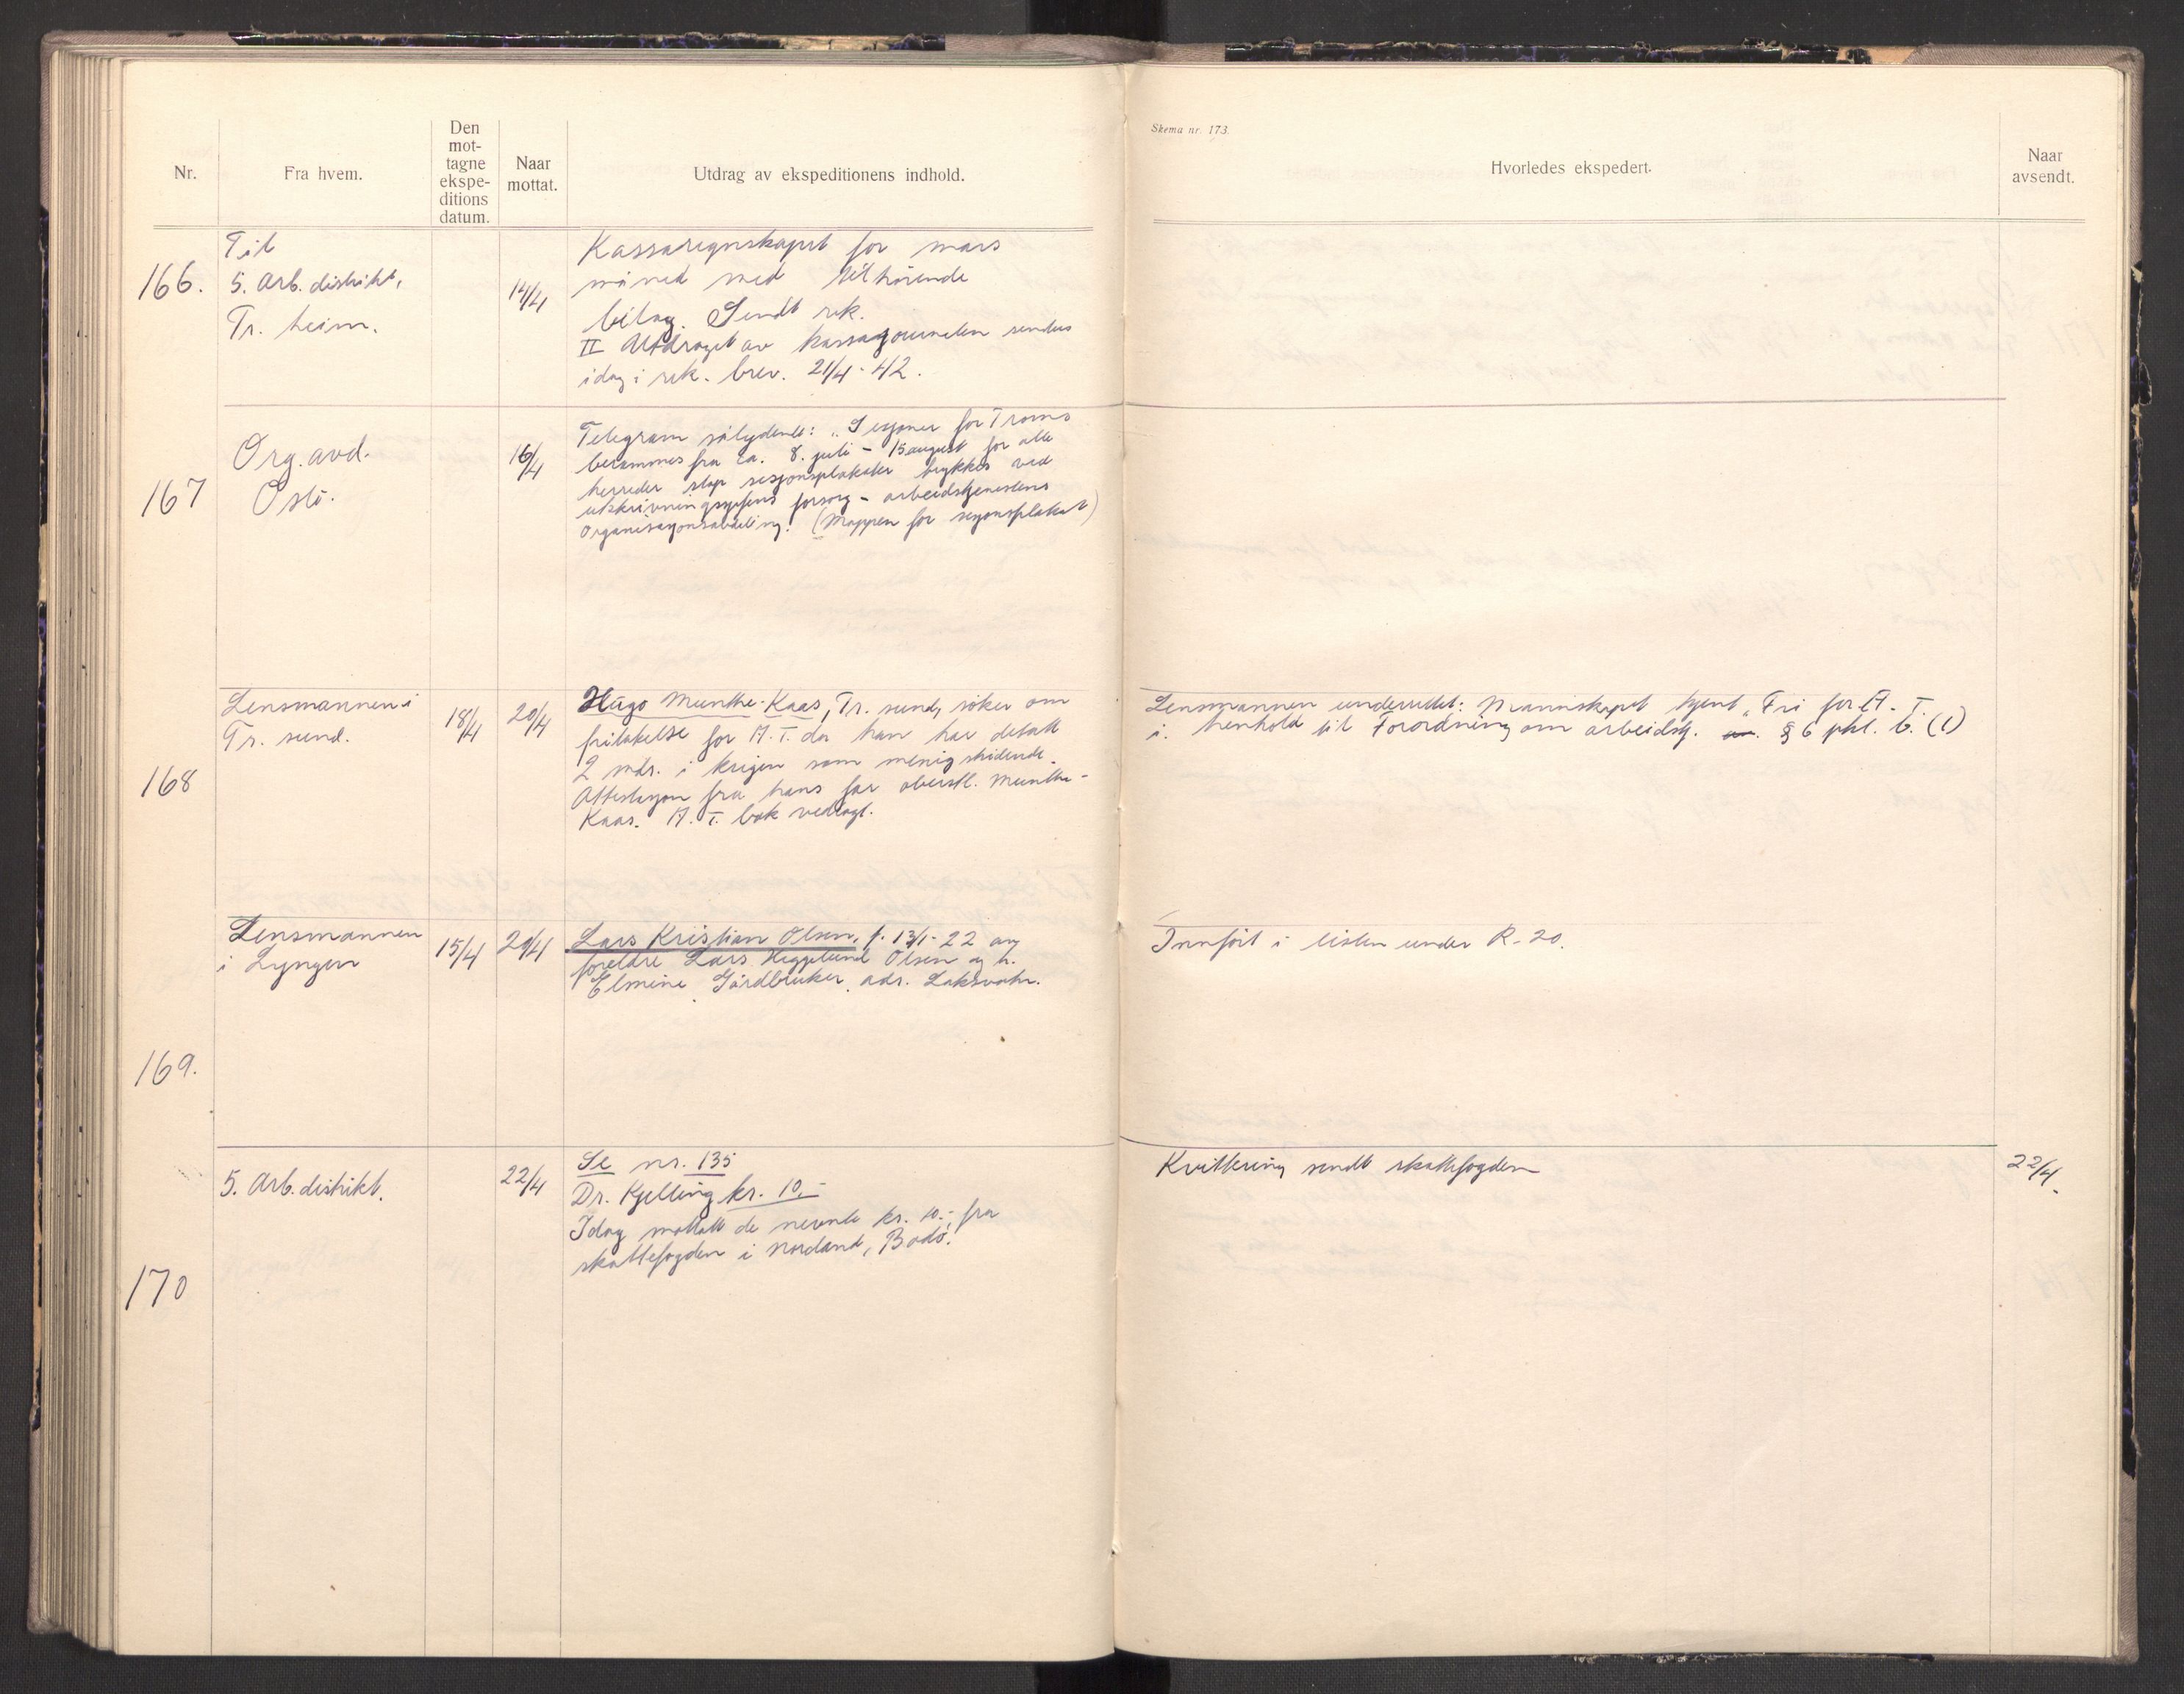 Skema nr. 173.
Nr.
Fra hvem.
Den
mot-
tagne
ekspe-
ditions
datum.
Naar
mottat.
Utdrag av ekspeditionens indhold.
Hvorledes ekspedert.
Naar
avsendt.
166.
Til
5. Arb. distrikt,
Tr. heim.
14/4
Kassaregnskapet for mars
måned med tilhörende
bilag. Sendt rek.
II Utdraget av kassajournalen sendes
idag i rek. brev. 21/4-42.
167
Org. avd.
Oslo.
16/4
Telegram sålydende: „Sesjoner for Troms
berammes fra ca. 8. juli - 15 august for alle
herreder stop sesjonsplakater trykkes ved
utskrivningssjefens forsorg - arbeidstjenestens
Organisasjonsavdeling! (Mappen for sesjonsplakat)
168
Lensmannen i
Tr. sund.
18/4
20/4
Hugo Munthe-Kaas, Tr. sund, söker om
fritakelse for A.T. da han har deltatt
2 mdr. i krigen som menig stridende.
Attestasjon fra hans far oberstl. Munthe-
Kaas. A.T. bok vedlagt.
Lensmannen underrettet: Mannskapet kjent „Fri for A.T.
i henhold til Forordning om arbeidstj. § 6 pkt. b. (1)
169.
Lensmannen
i Lyngen
15/4
20/4
Lars Kristian Olsen, f. 13/1-22 av
foreldre Lars Heggelund Olsen og h.
Elmine. Gårdbruker, adr. Laksvatn.
Innfört i listen under R-20.
170
5. Arb. distrikt.
22/4
Se nr. 135
Dr. Kjelling kr. 10,-
Idag mottatt de nevnte kr. 10.-, fra
skattefogden i Nordland, Bodö.
Kvittering sendt skattefogden
22/4.